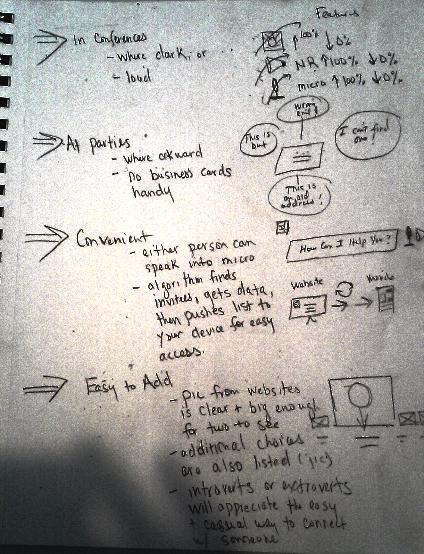 Features
In Conferences
- where dark, or
- loud
↑100% ↓0%
NR ↑100% ↓0%
micro ↑100% ↓0%
At parties
- where
- no business cards
handy
This is
I can't find
one!
This is
an old
address!
Convenient
- either person can
speak into micro
- algorithm finds
invitees, gets data,
then pushes list to
your device for easy
access.
How Can I Help You?
website
Easy to Add
- pic from websites
is clear + big enough
for two to see
- additional choices
are also listed
- introverts or extroverts
will appreciate the easy
+ casual way to connect
w/ someone